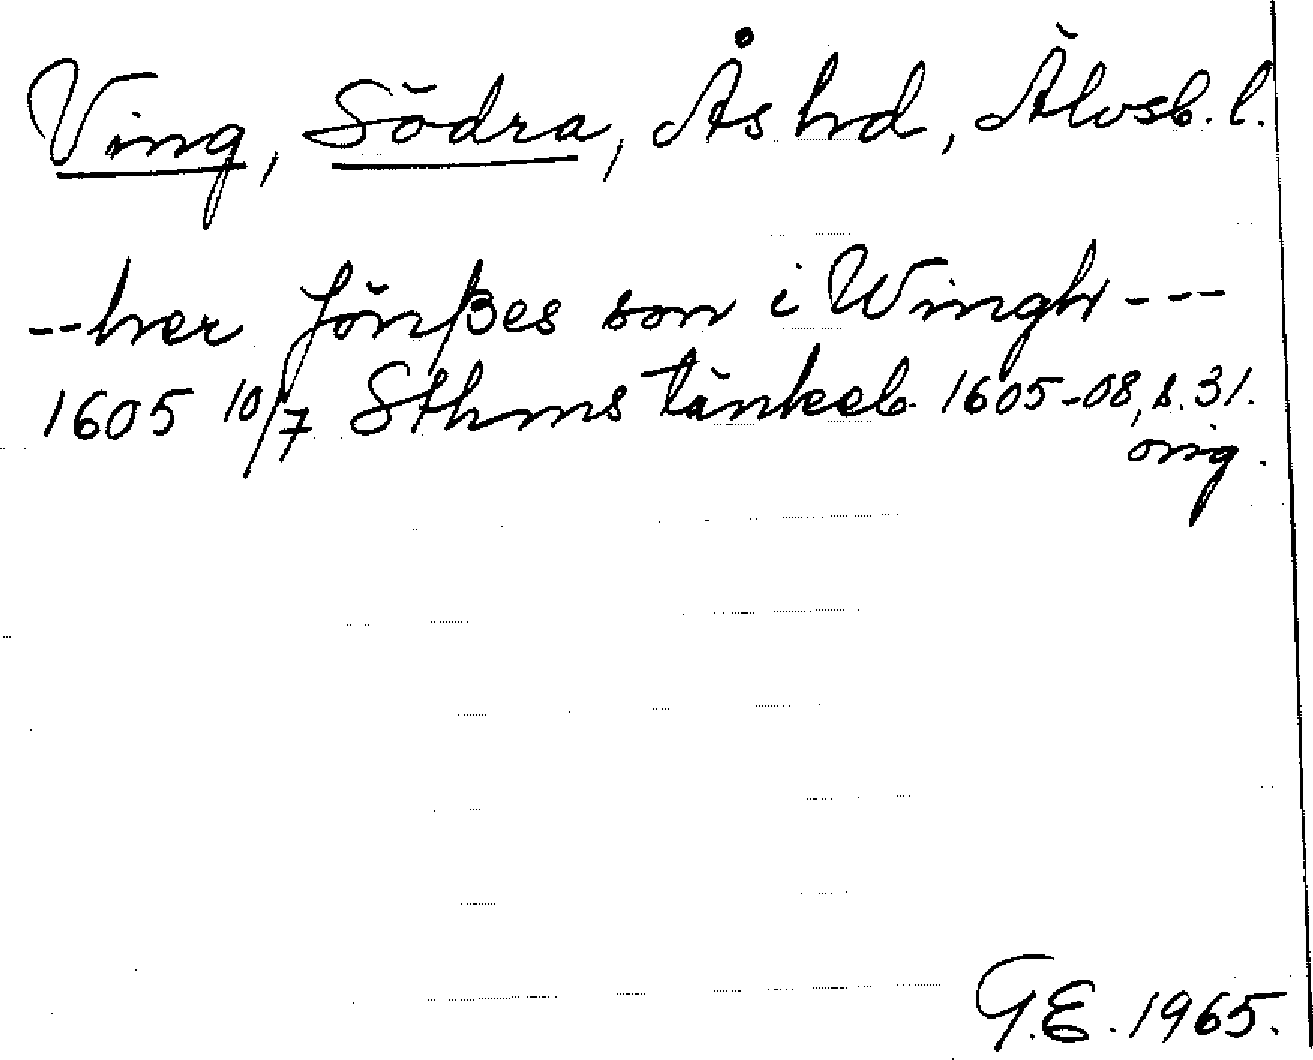 Ving, Södra, Ås hd, Älvsb. l.
--her Jönßes son i Wingh---
1605 10/7 Sthms tänkeb. 1605-08, s. 31.
orig.
G.E. 1965.